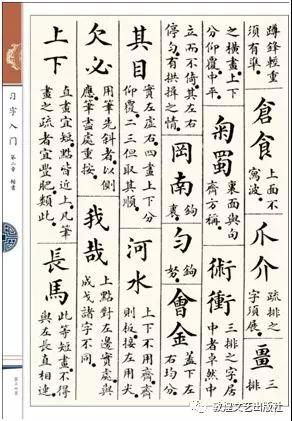 蹲鋒輕重
須有準
倉食
上面不
寫波
爪介
疏排之
字須展
畺
三
排
之橫畫上下
分仰覆中平
菊蜀
裏面與句
齊方稱
術衝
三排之字居
中者卓然中
立而不倚其左右
停勻有拱揖之情
岡南
鉤
裏
勻
鉤
努
會金
蓋下左
右均分
其目
實左虛右四畫上下分
仰覆二三但取其順
河水
上下不用齊齊
則板撐左用尖
欠必
用筆先斜者以側
應筆盡處重按
我哉
上點對左邊實處與
成戈諸字不同
上下
直畫宜短點皆近上凡筆
畫之疏者宜豐肥類此
長馬
此等短畫不得
與左長直相連
习字入门
第二章 楷書
敦煌文艺出版社